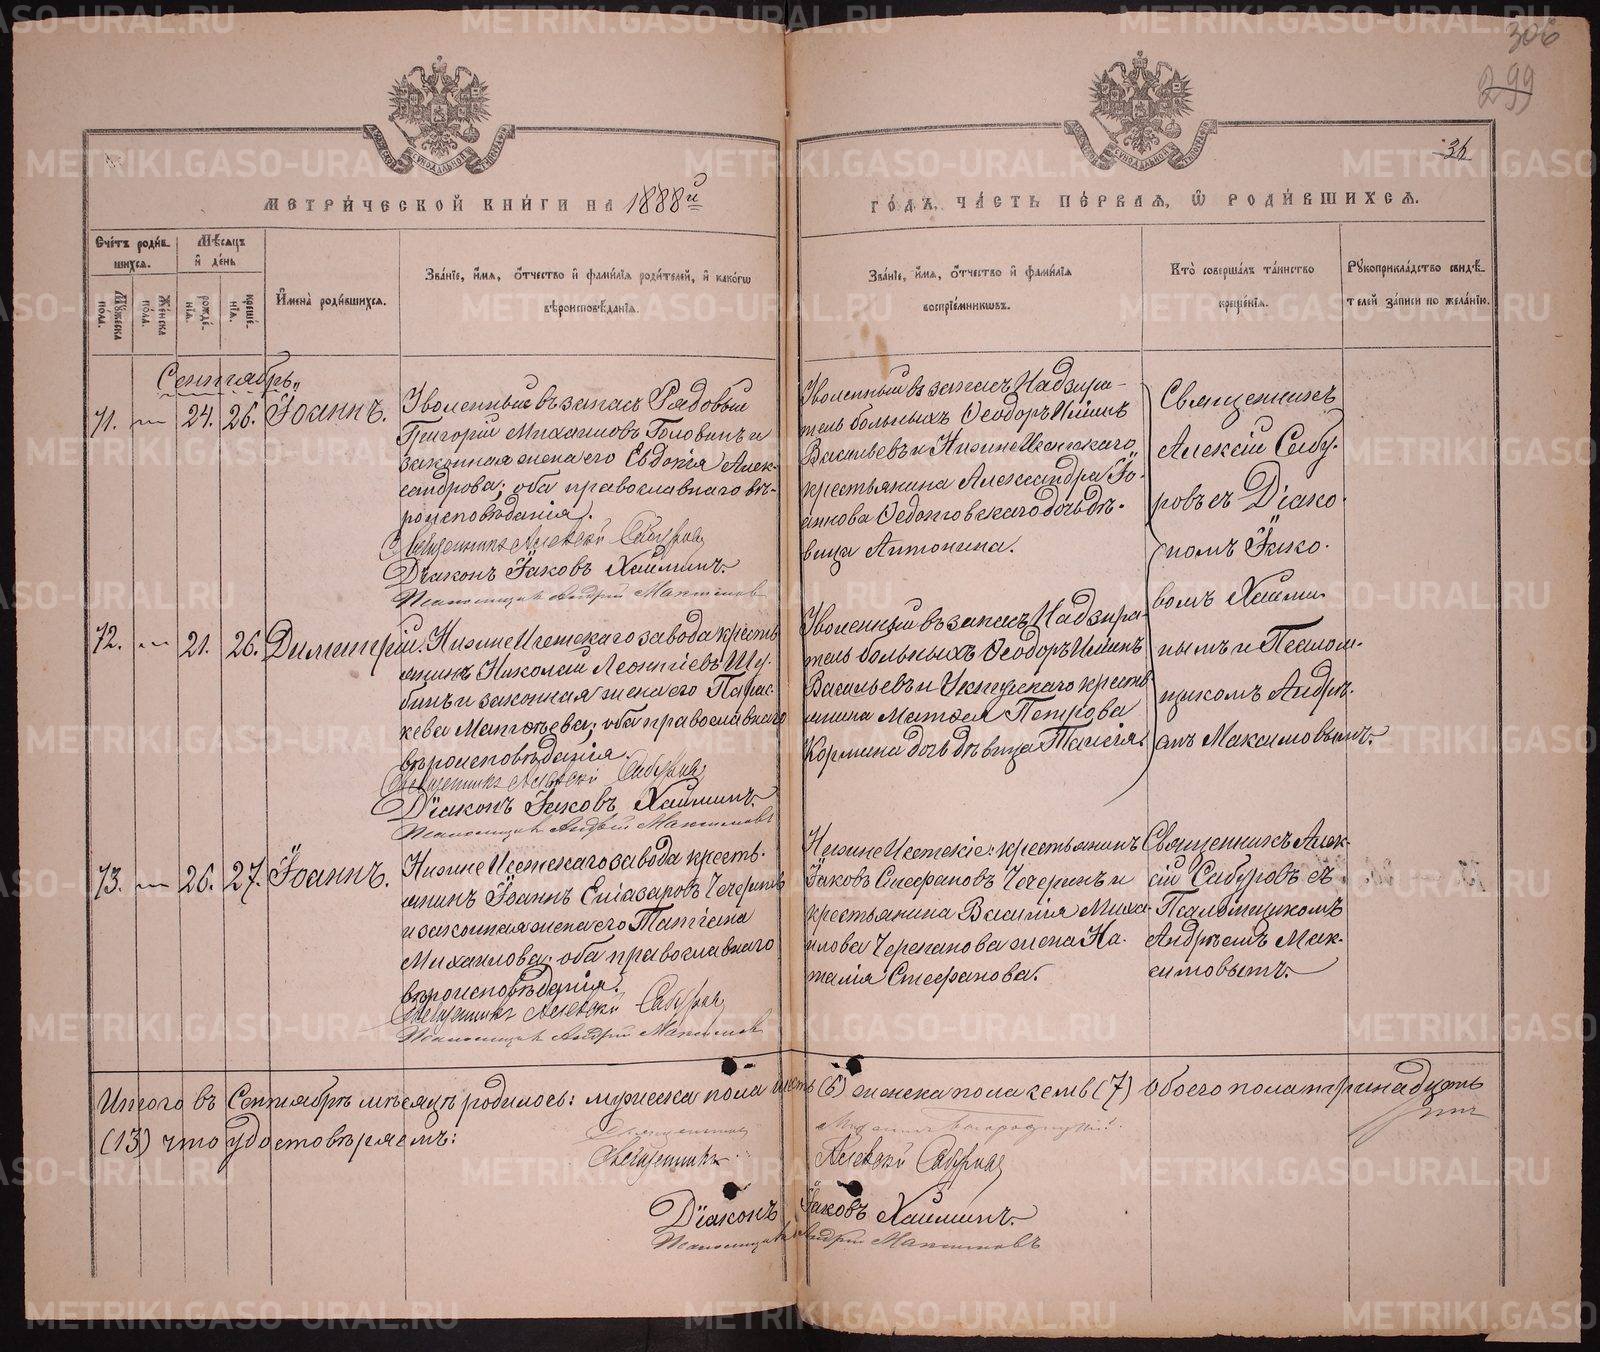 306
299
36
МЕТРИ́ЧЕСКОЙ КНИ́ГИ НА 1888й
ГО́ДЪ, ЧА́СТЬ ПЕ́РВАЯ, Ѽ РОДИ́ВШИХСЯ.
Сче́тъ роди́в-
шихся.
Мѣсяцъ
и҆ де́нь
Му́жеска
пола.
Же́нска
пола.
рожде́-
нїя.
креще́-
нїя.
И҆мена̀ роди́вшихся.
Зва́нїе, и҆́мя, ѻ҆́тчество и҆ фами́лїя роди́телей, и҆ како́гѡ
вѣроисповѣ́данїя.
Зва́нїе, и҆́мя, ѻ҆́тчество и҆ фами́лїя
воспрїе́мникѡвъ.
Кто̀ соверша́лъ та́инство
креще́нїя.
Рукоприкла́дство свидѣ́-
телей за́писи по жела́нїю.
Сентябрь
71.
24.
26.
Іоаннъ.
Уволенный въ запасъ Рядовый
Григорій Михаиловъ Головинъ и
законная жена его Евдокія Алек-
сандрова; оба православнаго вѣ-
роисповѣданія.
Священникъ Алексій Сабуровъ
Діаконъ Іаковъ Хайминъ.
Псаломщикъ Андрей Максимовъ
Уволенный въ запасъ Надзира-
тель больныхъ Ѳеодоръ Іліинъ
Васильевъ и Нижне Исетскаго
крестьянина Александра Іо-
аннова Ѳедотовскаго дочь дѣ-
вица Антонина.
Священникъ
Алексій Сабу-
ровъ съ Діако-
номъ Іако-
вомъ Хайми-
нымъ и Псалом-
щикомъ Андре-
емъ Максимовымъ.
72.
21.
26.
Димитрій.
Нижне Исетскаго завода кресть-
янинъ Николай Леонтіевъ Шу-
бинъ и законная жена его Парас-
кева Матѳѣева; оба православнаго
вѣроисповѣданія.
Священникъ Алексій Сабуровъ
Діаконъ Іаковъ Хайминъ.
Псаломщикъ Андрей Максимовъ
Уволенный въ запасъ Надзира-
тель больныхъ Ѳеодоръ Іліинъ
Васильевъ и Уктусскаго кресть-
янина Матѳея Петрова
Кормина дочь дѣвица Таисія.
73.
26.
27.
Іоаннъ.
Нижне Исетскаго завода кресть-
янинъ Іоаннъ Еліазаровъ Чечеринъ
и законная жена его Татіана
Михаилова; оба православнаго
вѣроисповѣданія.
Священникъ Алексій Сабуровъ
Псаломщикъ Андрей Максимовъ
Нижне Исетскіе: крестьянинъ
Іаковъ Стефановъ Чечеринъ и
крестьянина Василія Миха-
илова Черепанова жена На-
талія Стефанова.
Священникъ Алек-
сій Сабуровъ съ
Псаломщикомъ
Андреемъ Мак-
симовымъ.
Итого въ Сентябрѣ мѣсяцѣ родилось: мужеска пола шесть (6) женска пола семь (7) обоего пола тринадцать
(13) что удостовѣряемъ:
Священникъ Алексій Сабуровъ
Діаконъ Іаковъ Хайминъ.
Псаломщикъ Андрей Максимовъ
METRIKI.GASO-URAL.RU